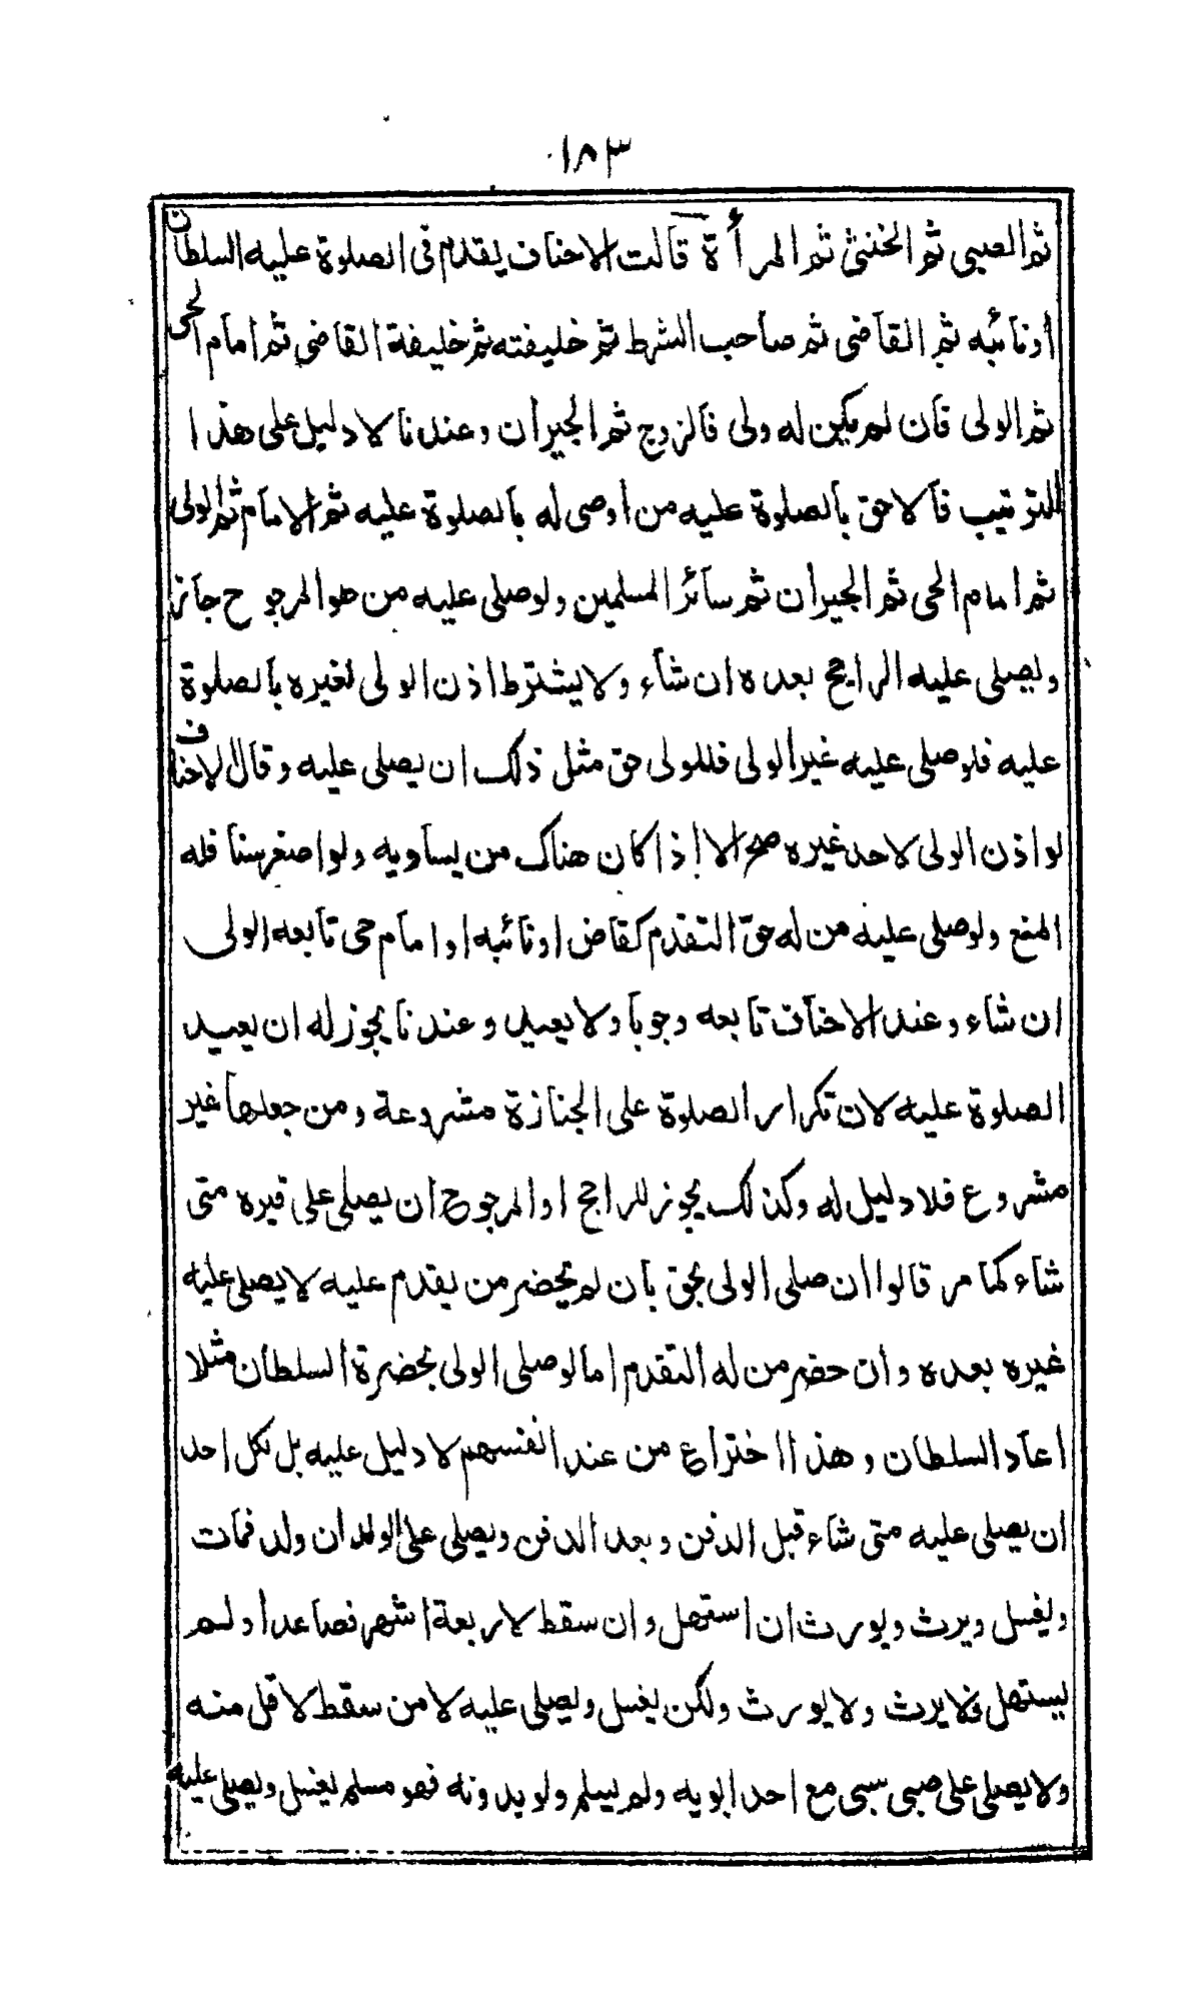 ١٨٣
ثم الصبى ثم الخنثى ثم المرأة قالت الاحناف يقدم فى الصلوة عليه السلطان
أو نائبه ثم القاضى ثم صاحب الشرط ثم خليفته ثم خليفة القاضى ثم امام الحى
ثم الولى فان لم يكن له ولى فالزوج ثم الجيران وعندنا لا دليل على هذا
الترتيب فالاحق بالصلوة عليه من أوصى له بالصلوة عليه ثم الامام ثم الولى
ثم امام الحى ثم الجيران ثم سائر المسلمين ولو صلى عليه من هو المرجوح جاز
ويصلى عليه الراجح بعده ان شاء ولا يشترط اذن الولى لغيره بالصلوة
عليه فلو صلى عليه غير الولى فللولى حق مثل ذلك ان يصلى عليه وقال الاحناف
لو اذن الولى لاحد غيره صح الا اذا كان هناك من يساويه ولو اصغر سنا فله
المنع ولو صلى عليه من له حق التقدم كقاض او نائبه او امام حى تابعه الولى
ان شاء وعند الاحناف تابعه وجوبا ولا يعيد وعندنا يجوز له ان يعيد
الصلوة عليه لان تكرار الصلوة على الجنازة مشروعة ومن جعلها غير
مشروع فلا دليل له وكذلك يجوز للراجح او المرجوح ان يصلى على قبره متى
شاء كما مر قالوا ان صلى الولى بحق بان لم يحضر من يقدم عليه لا يصلى عليه
غيره بعده وان حضر من له التقدم اما لو صلى الولى بحضرة السلطان مثلا
اعاد السلطان وهذا اختراع من عند انفسهم لا دليل عليه بل لكل احد
ان يصلى عليه متى شاء قبل الدفن وبعد الدفن ويصلى على الولد ان ولد فمات
ويغسل ويرث ويورث ان استهل وان سقط لاربعة اشهر فصاعدا ولم
يستهل فلا يرث ولا يورث ولكن يغسل ويصلى عليه لا من سقط لاقل منه
ولا يصلى على صبى سبى مع احد ابويه ولم يسلم ولو بدونه فهو مسلم يغسل ويصلى عليه